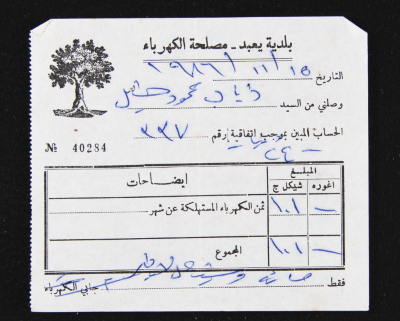 بلدية يعبد - مصلحة الكهرباء
التاريخ ١٥ / ١١ / ١٩٨٦
وصلني من السيد ذياب محمود
الحساب المبين بموجب اتفاقية رقم ٣٣٧
№ 40284
ايضاحات المبلغ
شيكل ج اغوره
ثمن الكهرباء المستهلكة عن شهر ١٠١ —
المجموع ١٠١ —
فقط مائة و جابي الكهرباء